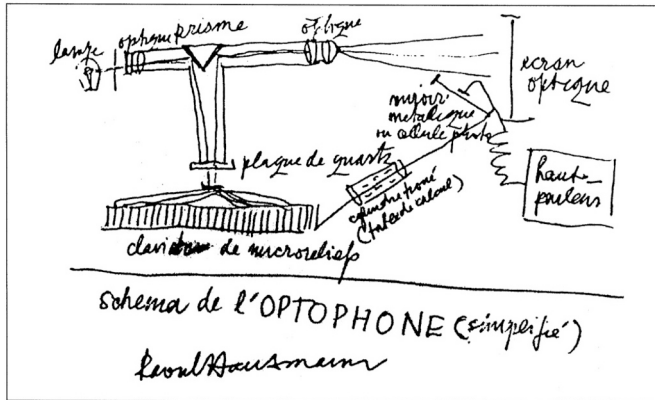 lampe
optique
prisme
optique
écran
optique
miroir
métalique
ou céllule photo
plaque de quartz
cylindre troué
(tables de calcul)
haut-
parleurs
de microreliefs
schema de l'OPTOPHONE (simplifié)
Raoul Hausmann